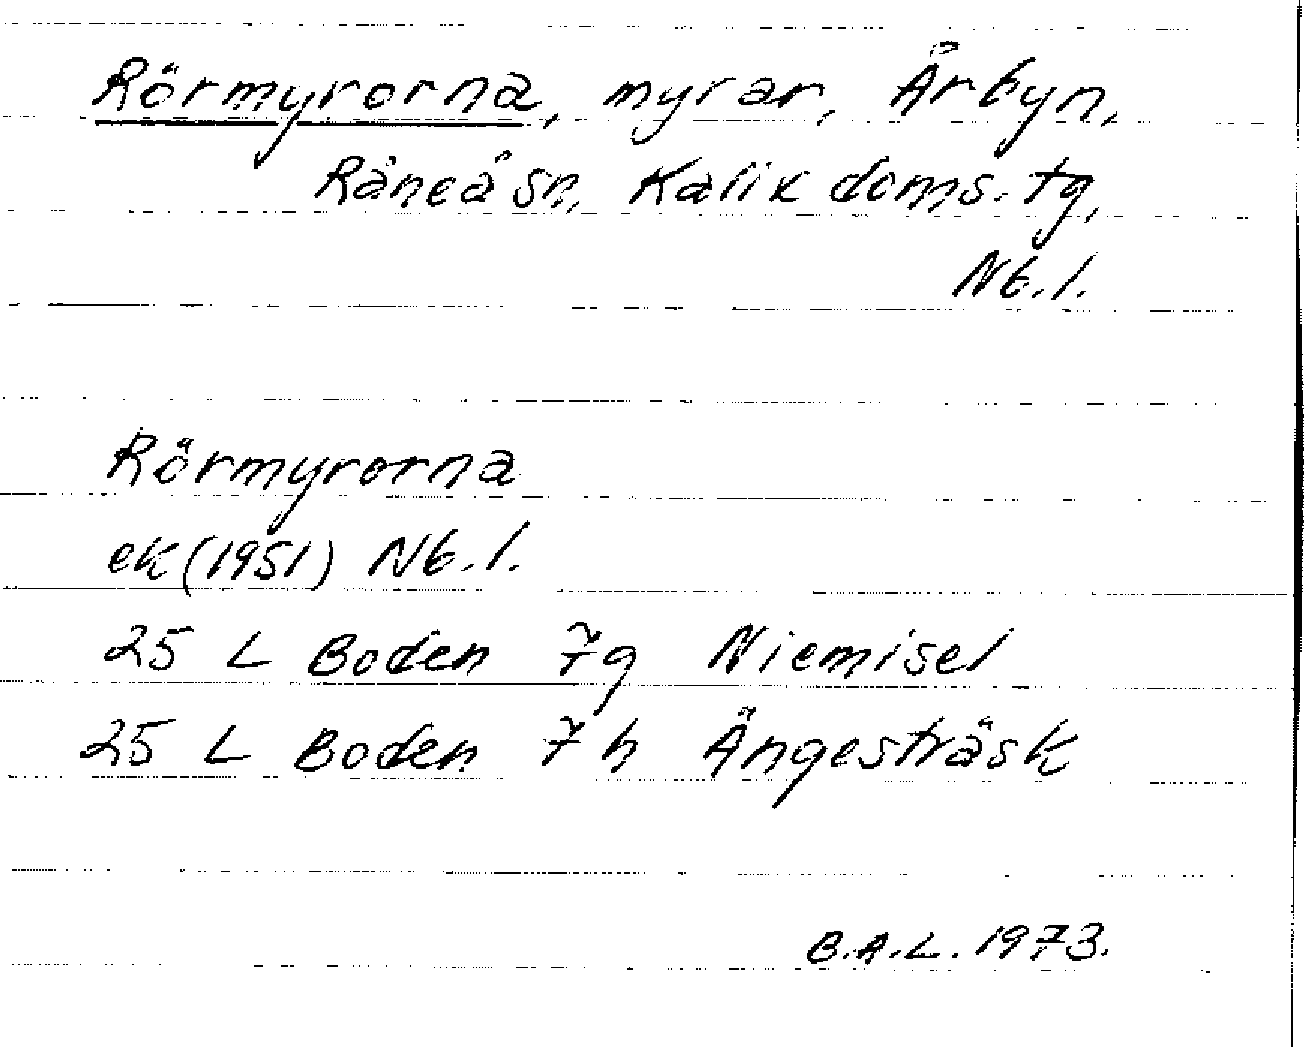 Rörmyrorna, myrar, Årbyn,
Råneå sn, Kalix doms. tg,
Nb. l.
Rörmyrorna
ek (1951) Nb. l.
25 L Boden 7g Niemisel
25 L Boden 7h Ängesträsk
B.A.L. 1973.